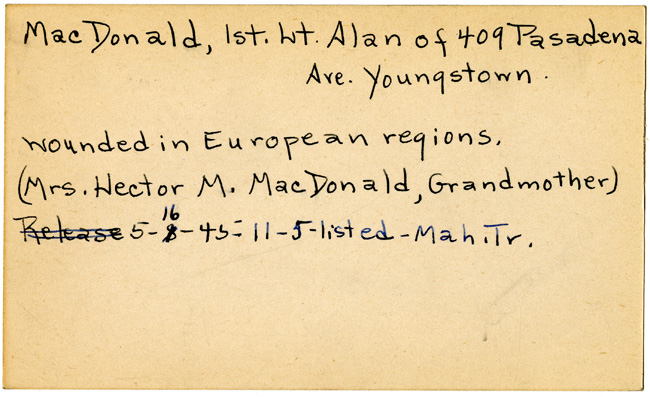 MacDonald, 1st. Lt. Alan of 409 Pasadena
Ave. Youngstown.
wounded in European regions.
(Mrs. Hector M. MacDonald, Grandmother)
Release 5-16-45=11-5-listed-Mah.Tr.